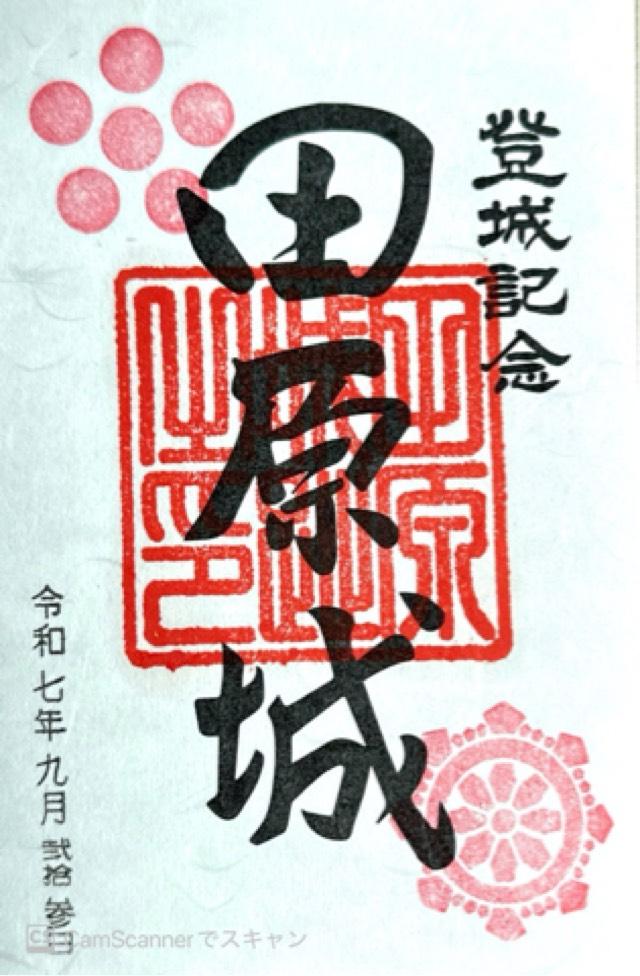 登城記念
田原城
令和七年九月弐拾参日
CS CamScannerでスキャン